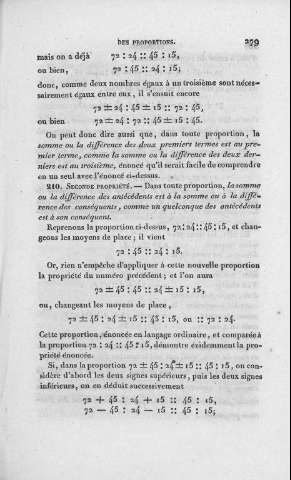 DES PROPORTIONS. 279
mais on a déjà 72 : 24 :: 45 : 15,
ou bien, 72 : 45 :: 24 : 15;
donc, comme deux nombres égaux à un troisième sont néces-
sairement égaux entre eux, il s'ensuit encore
72 ± 24 : 45 ± 15 :: 72 : 45,
ou bien 72 ± 24 : 72 :: 45 ± 15 : 45.
On peut donc dire aussi que, dans toute proportion, la
somme ou la différence des deux premiers termes est au pre-
mier terme, comme la somme ou la différence des deux der-
niers est au troisième, énoncé qu'il serait facile de comprendre
en un seul avec l'énoncé ci-dessus.
210. SECONDE PROPRIÉTÉ. — Dans toute proportion, la somme
ou la différence des antécédents est à la somme ou à la diffé-
rence des conséquents, comme un quelconque des antécédents
est à son conséquent.
Reprenons la proportion ci-dessus, 72 : 24 :: 45 : 15, et chan-
geons les moyens de place; il vient
72 : 45 :: 24 : 15.
Or, rien n'empêche d'appliquer à cette nouvelle proportion
la propriété du numéro précédent; et l'on aura
72 ± 45 : 45 :: 24 ± 15 : 15,
ou, changeant les moyens de place,
72 ± 45 : 24 ± 15 :: 45 : 15, ou :: 72 : 24.
Cette proportion, énoncée en langage ordinaire, et comparée à
la proportion 72 : 24 :: 45 : 15, démontre évidemment la pro-
priété énoncée.
Si, dans la proportion 72 ± 45 : 24 ± 15 :: 45 : 15, on con-
sidère d'abord les deux signes supérieurs, puis les deux signes
inférieurs, on en déduit successivement
72 + 45 : 24 + 15 :: 45 : 15,
72 — 45 : 24 — 15 :: 45 : 15;